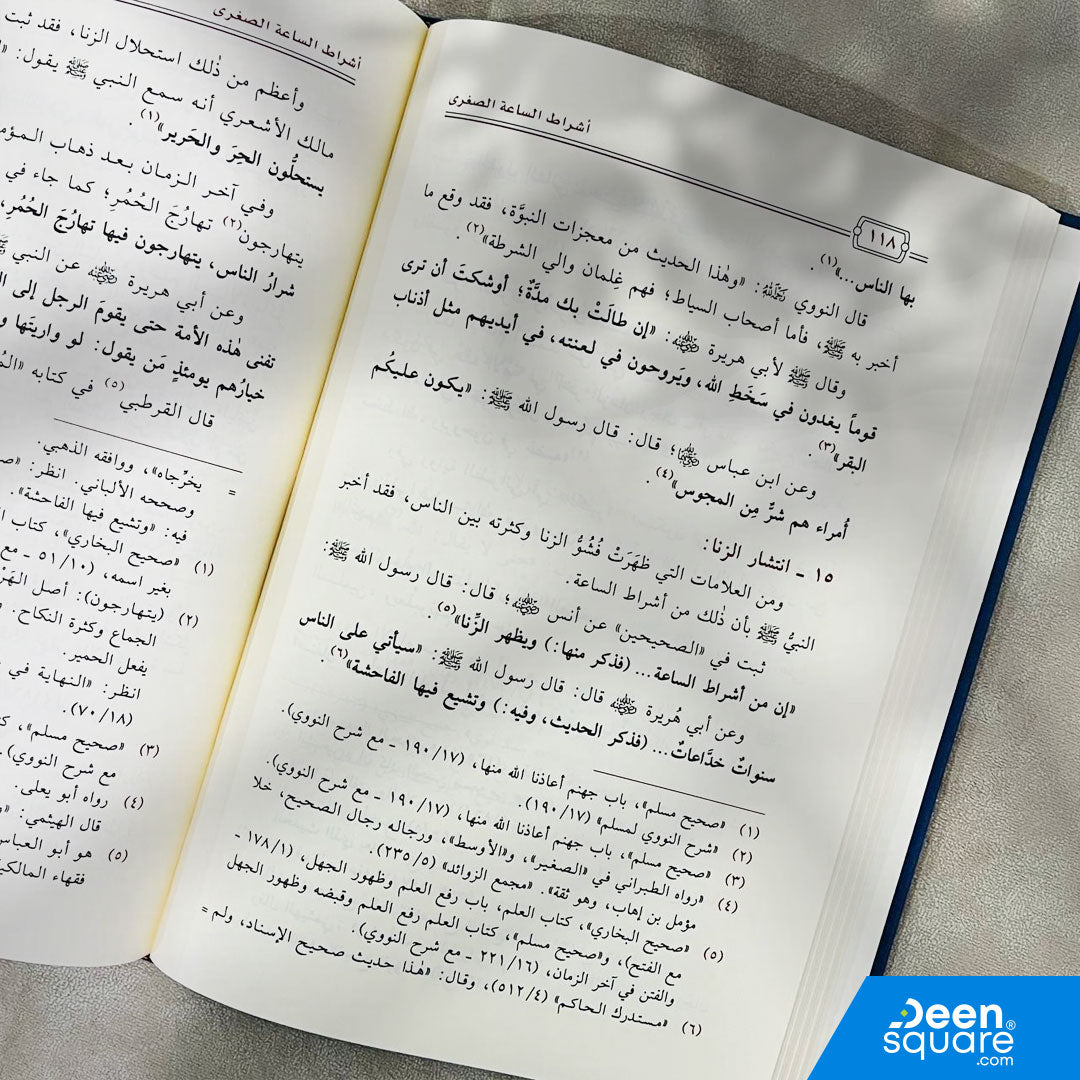 أشراط الساعة الصغرى
١١٨
بها الناس...»(١).
قال النووي رحمه الله: «وهٰذا الحديث من معجزات النبوَّة، فقد وقع ما
أخبر به ﷺ، فأما أصحاب السياط؛ فهم غِلمان والي الشرطة»(٢).
وقال ﷺ لأبي هريرة رضي الله عنه: «إن طالَتْ بك مدَّةٌ؛ أوشكتَ أن ترى
قوماً يغدون في سَخَطِ الله، ويَروحون في لعنته، في أيديهم مثل أذناب
البقر»(٣).
وعن ابن عباس رضي الله عنهما؛ قال: قال رسول الله ﷺ: «يكون عليكُم
أُمراء هم شرٌّ مِن المجوس»(٤).
١٥ ـ انتشار الزنا:
ومن العلامات التي ظهَرَتْ فُشُوُّ الزنا وكثرته بين الناس، فقد أخبر
النبيُّ ﷺ بأن ذٰلك من أشراط الساعة.
ثبت في «الصحيحين» عن أنس رضي الله عنه؛ قال: قال رسول الله ﷺ:
«إن من أشراط الساعة... (فذكر منها:) ويظهر الزِّنا»(٥).
وعن أبي هُريرة رضي الله عنه قال: قال رسول الله ﷺ: «سيأتي على الناس
سنواتٌ خدَّاعاتٌ... (فذكر الحديث، وفيه:) وتشيع فيها الفاحشة»(٦).
(١) «صحيح مسلم»، باب جهنم أعاذنا الله منها، (١٧/ ١٩٠ ـ مع شرح النووي).
(٢) «شرح النووي لمسلم» (١٧/ ١٩٠).
(٣) «صحيح مسلم»، باب جهنم أعاذنا الله منها، (١٧/ ١٩٠ ـ مع شرح النووي).
(٤) «رواه الطبراني في «الصغير»، و«الأوسط»، ورجاله رجال الصحيح، خلا
مؤمل بن إهاب، وهو ثقة». «مجمع الزوائد» (٥/ ٢٣٥).
(٥) «صحيح البخاري»، كتاب العلم، باب رفع العلم وظهور الجهل، (١/ ١٧٨ ـ
مع الفتح)، و«صحيح مسلم»، كتاب العلم رفع العلم وقبضه وظهور الجهل
والفتن في آخر الزمان، (١٦/ ٢٢١ ـ مع شرح النووي).
(٦) «مستدرك الحاكم» (٤/ ٥١٢)، وقال: «هٰذا حديث صحيح الإسناد، ولم =
أشراط الساعة الصغرى
وأعظم من ذٰلك استحلال الزنا، فقد ثبت
مالك الأشعري أنه سمع النبي ﷺ يقول:
يستحلُّون الحِرَ والحَرير»(١).
وفي آخر الزمان بعد ذهاب
يتهارجون(٢) تهارُجَ الحُمُرِ؛ كما جاء في
شرارُ الناس، يتهارجون فيها تهارُجَ الحُمُرِ،
وعن أبي هريرة رضي الله عنه عن النبي
تفنى هٰذه الأمة حتى يقومَ الرجل إلى
خيارُهم يومئذٍ مَن يقول: لو واريتَها
قال القرطبي(٥) في كتابه
= يخرِّجاه»، ووافقه الذهبي.
وصححه الألباني. انظر:
فيه: «وتشيع فيها الفاحشة».
(١) «صحيح البخاري»، كتاب
بغير اسمه، (١٠/ ٥١ ـ مع
(٢) (يتهارجون): أصل
الجماع وكثرة النكاح.
يفعل الحمير.
انظر: «النهاية في
(١٨/ ٧٠).
(٣) «صحيح مسلم»،
مع شرح النووي).
(٤) رواه أبو يعلى.
قال الهيثمي:
(٥) هو أبو العباس
فقهاء
Deen
square®
.com